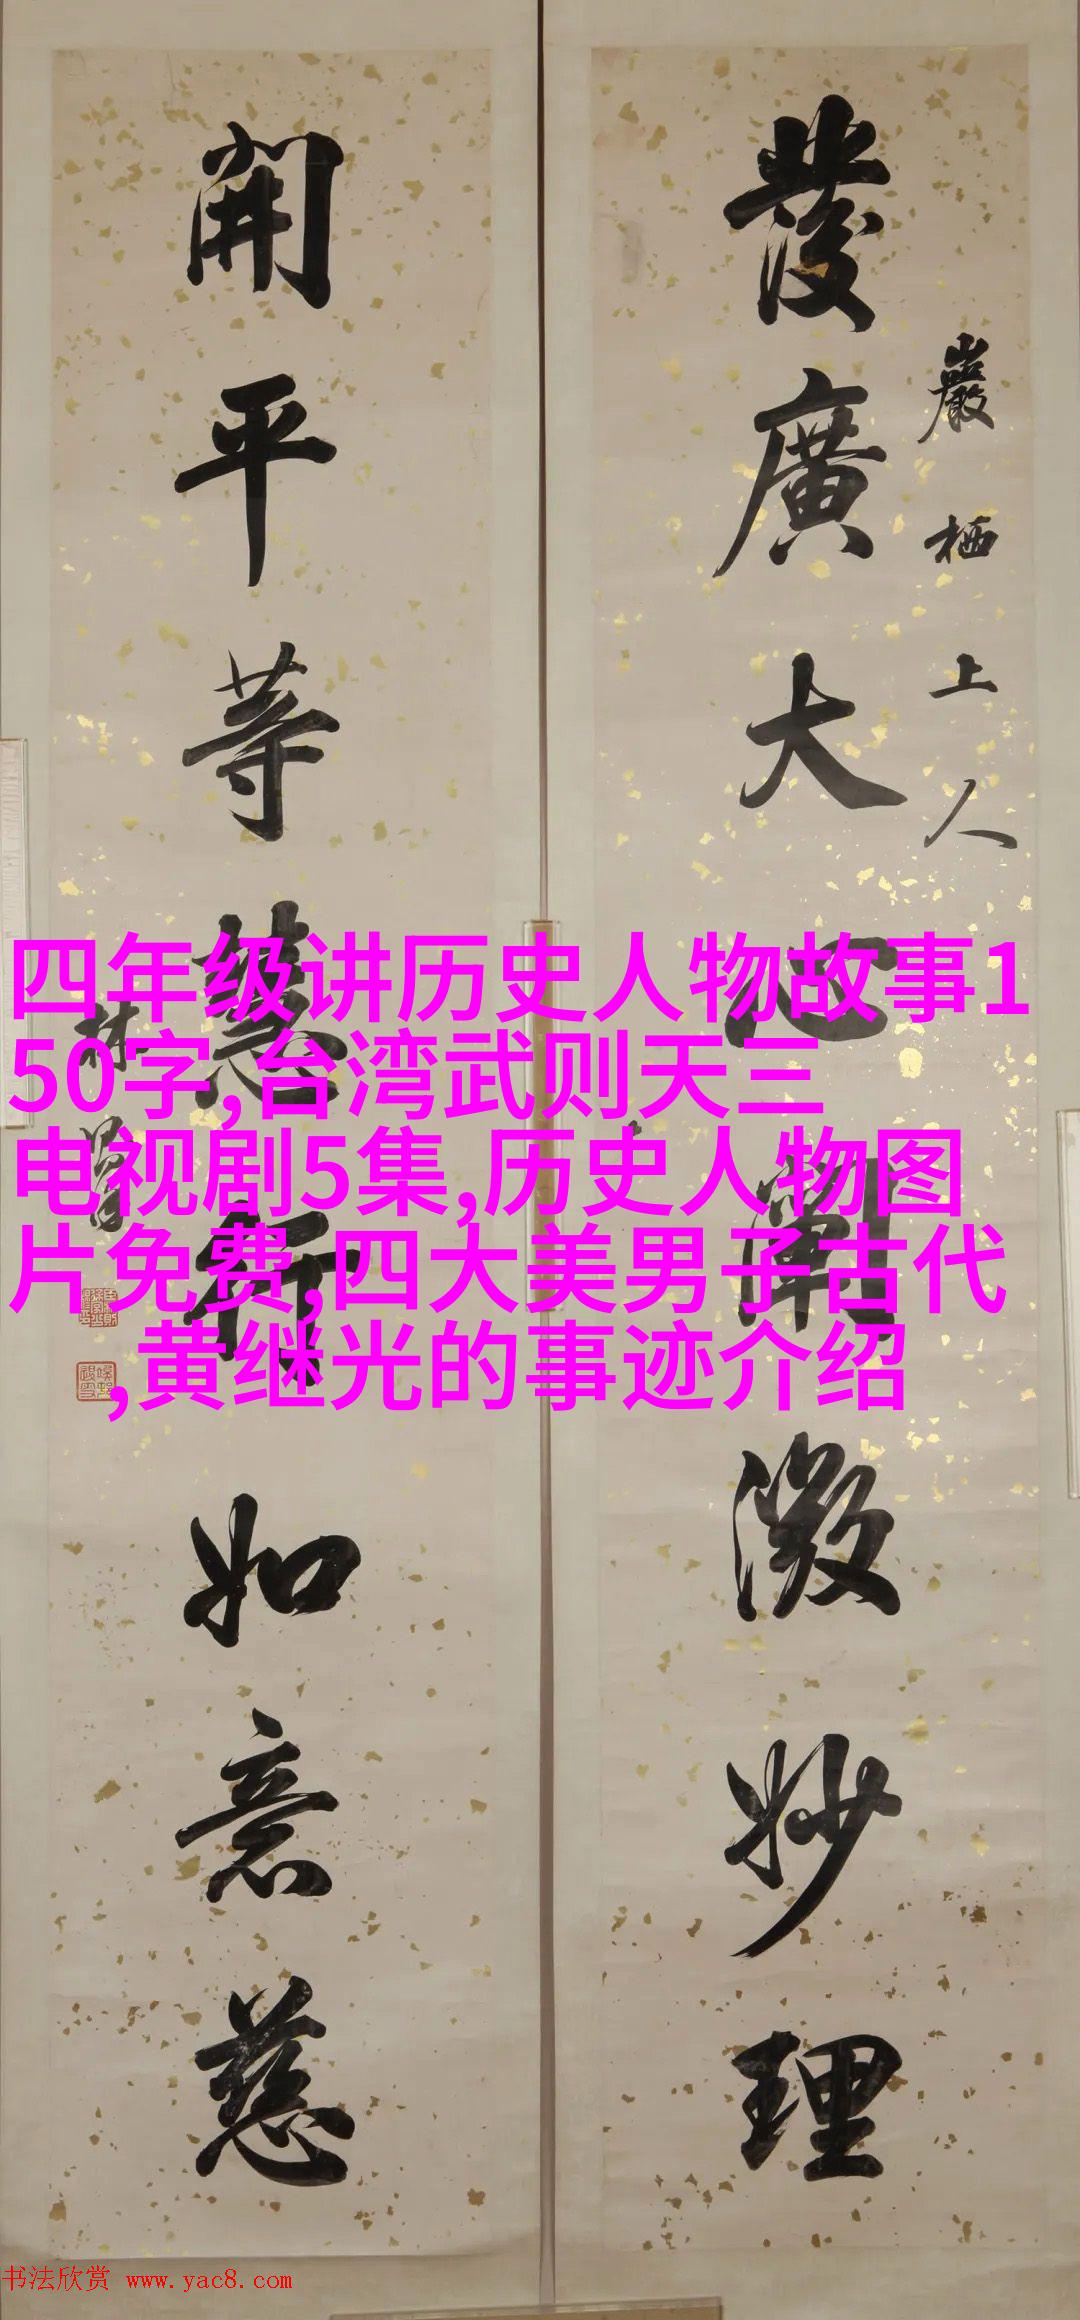 發廣大心闡微妙理
巖栖上人
開平等慧行如意慈
林
四年级讲历史人物故事1
50字,台湾武则天三
电视剧5集,历史人物图
片免费,四大美男子古代
,黄继光的事迹介绍
书法欣赏 www.yac8.com